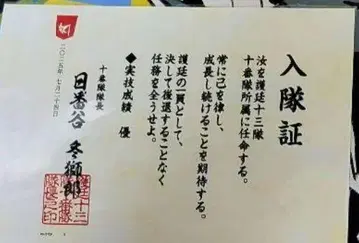 入隊証
汝を護廷十三隊
十番隊所属に任命する。
常に己を律し、
成長し続けることを期待する。
護廷の一員として、
決して後退することなく
任務を全うせよ。
◆実技成績 優
十番隊隊長
日番谷 冬獅郎
二〇二五年 七月二十四日